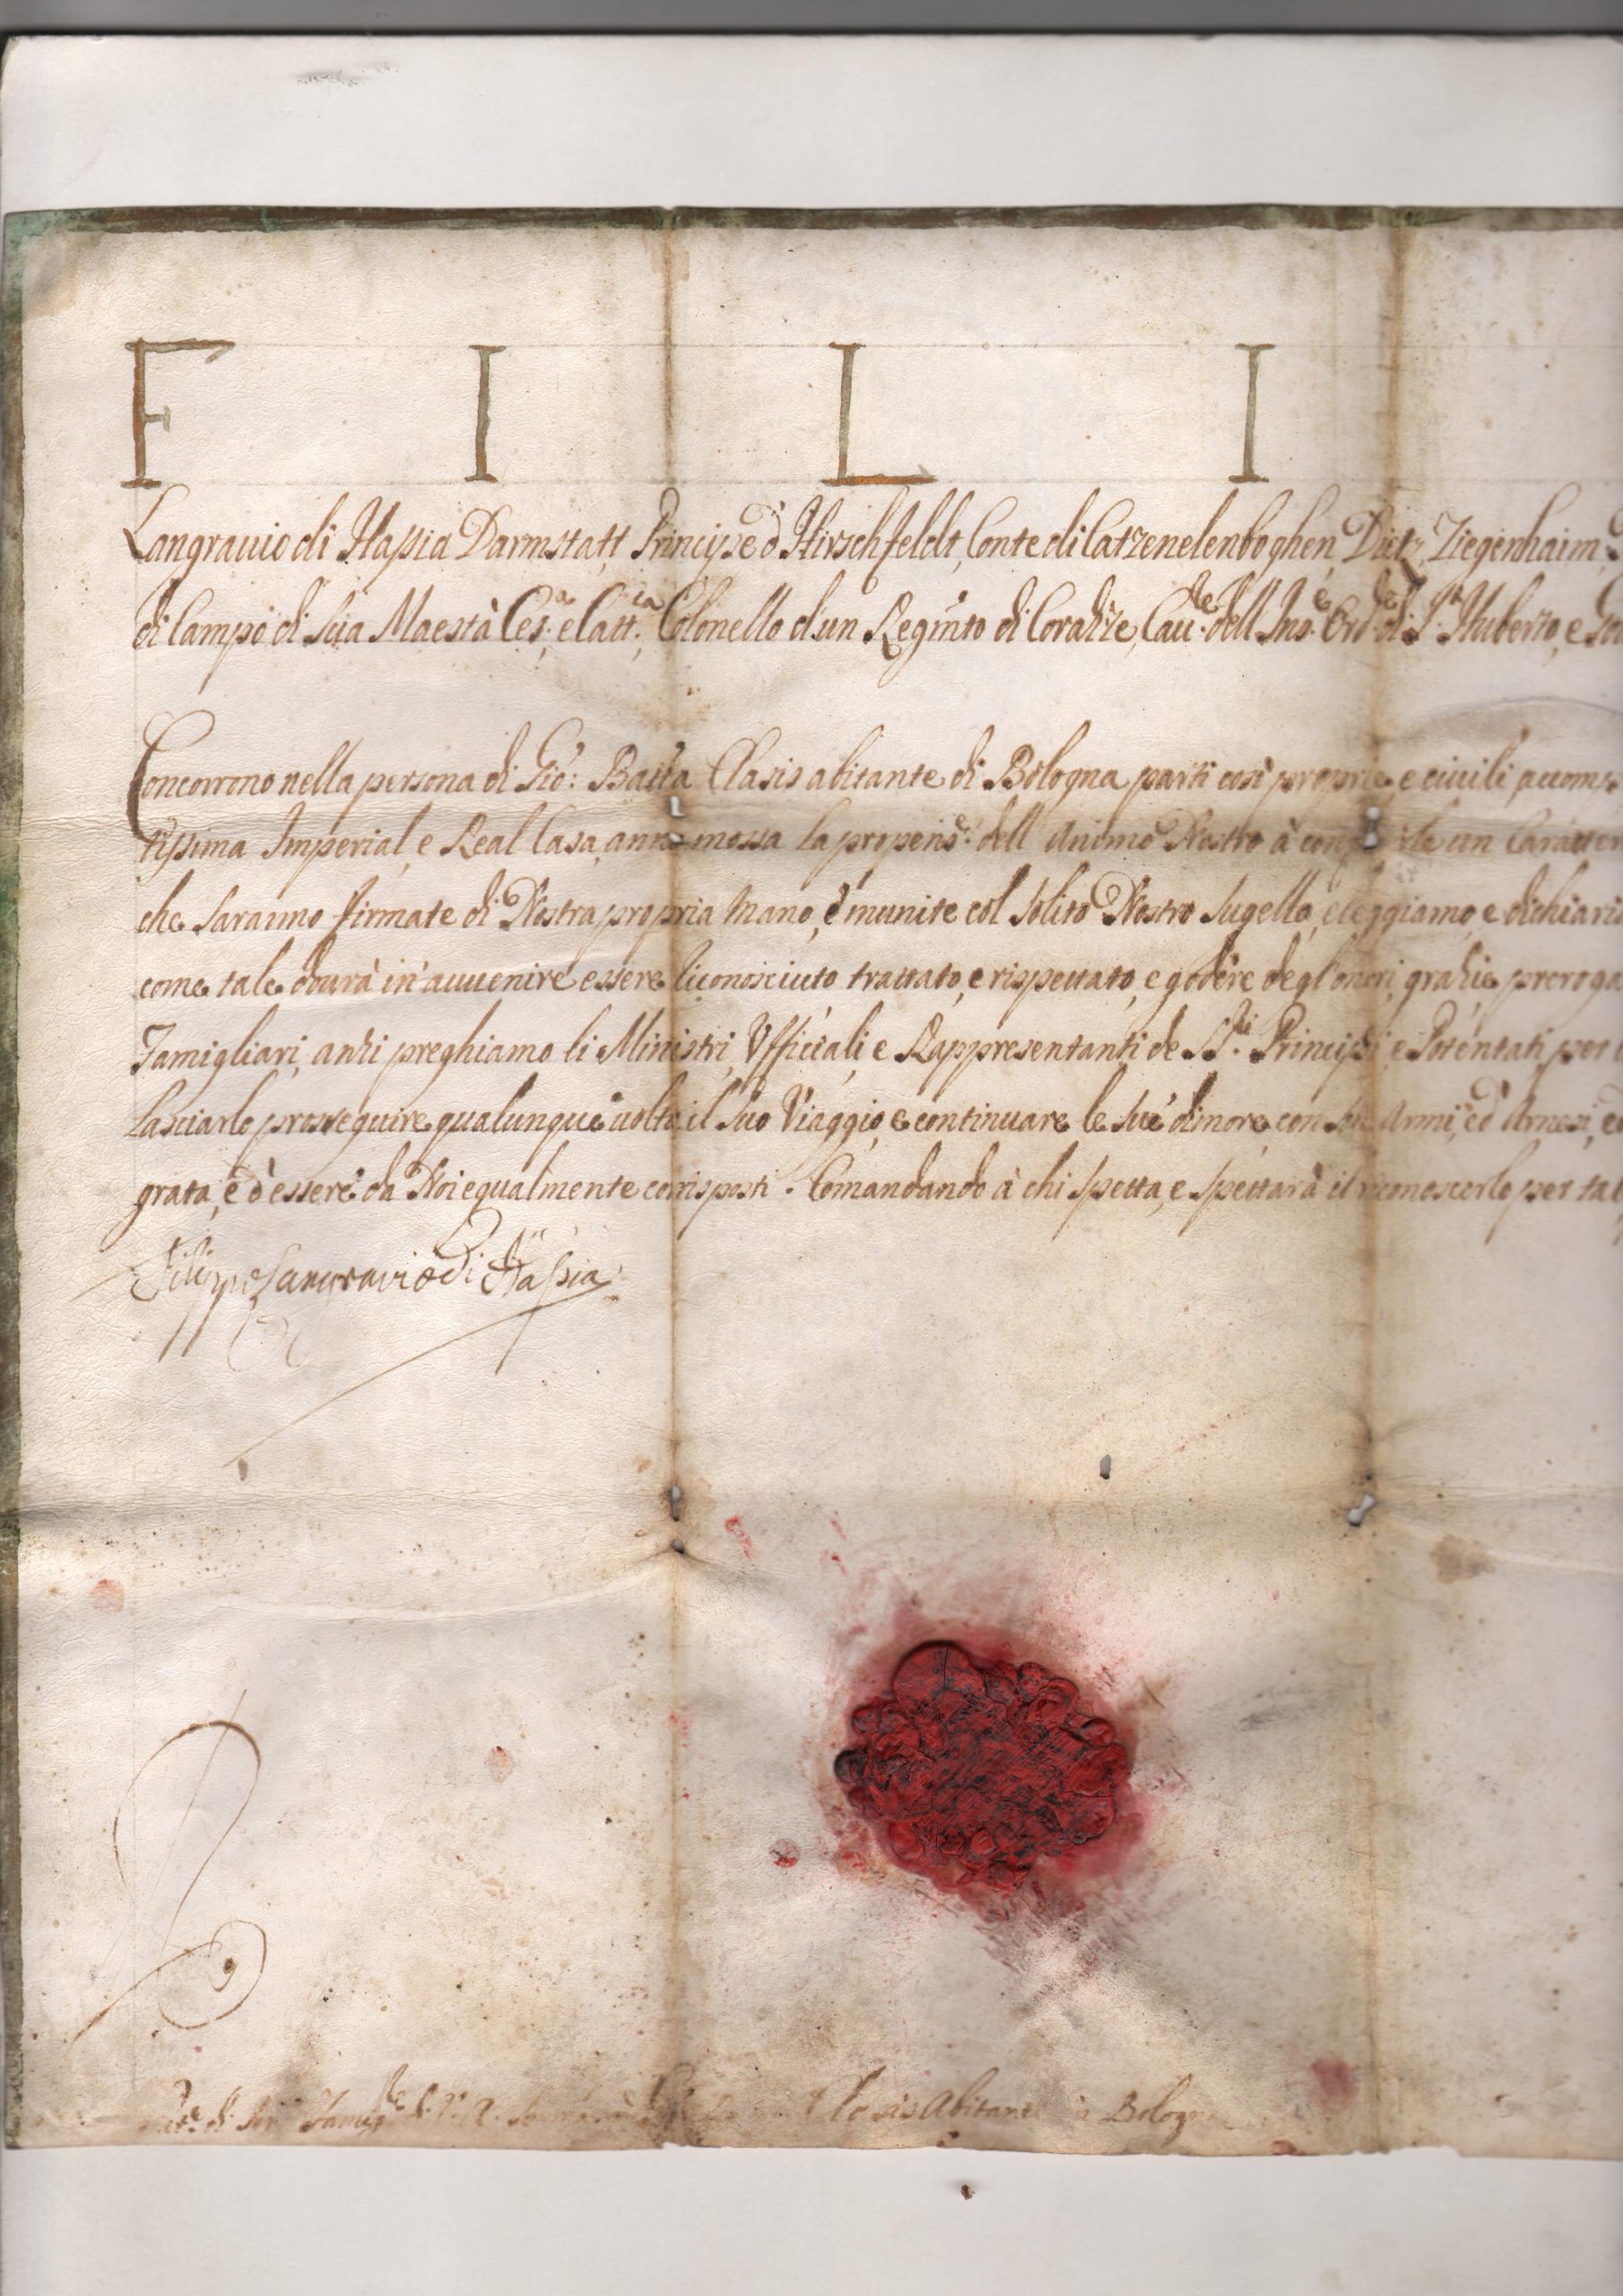 F I L I
Langravio di Hassia Darmstatt, Principe d'Hirschfeldt, Conte di Catzenelenboghen, Dietz, Ziegenhaim,
di Campo di Sua Maestà Ces.a e Catt.ca, Colonello d'un Regim̃to di Corazze, Cau.re dell Ins.e Ord.e di S.t Huberto, e
Concorrono nella persona di Gio: Batta Clasis abitante di Bologna parti così proprie, e ciuili accomp
tissima Imperial, e Real Casa, anno mossa la propens.e dell Animo Nostro à un Caratter
che saranno firmate di Nostra propria Mano, e munite col solito Nostro Sugello, eleggiamo, e dichiari
come tale dourà in auuenire essere riconosciuto trattato, e rispettato, e godere degl'onori, grazie, preroga
Famigliari, anzi preghiamo li Ministri, Vfficiali, e Rappresentanti de S.ri Principi, e Potentati, per
lasciarlo prosseguire qualunque uolta il suo Viaggio, e continuare le sue dimore con sue Armi, ed Arnesi, ed
grata, e d'essere da Noi equalmente corrisposti. Comandando à chi spetta, e spettarà il riconoscerlo per tal
Filippo Langravio di Hassia
Clasis Abitante in Bologna